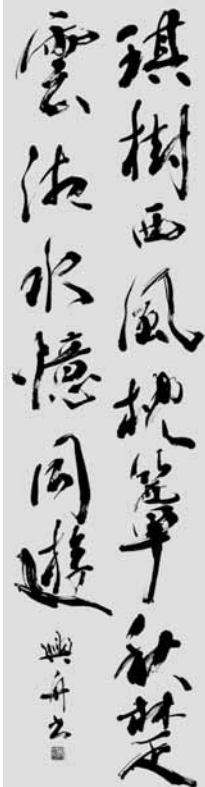 琪樹西風枕簟秋楚
雲湘水憶同遊
興舟书